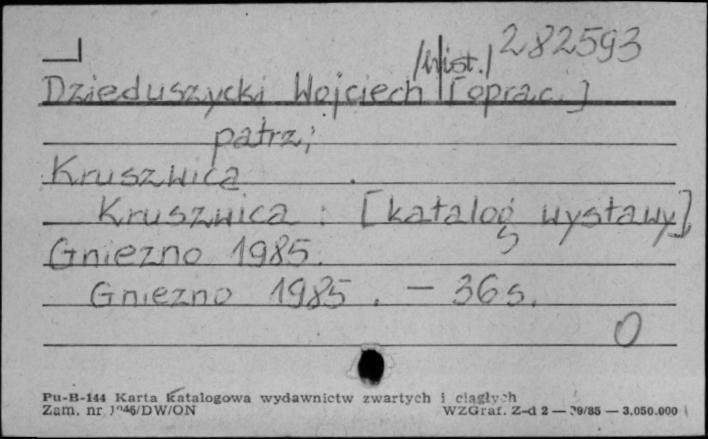 282593
/hist./
Dzieduszycki Wojciech [oprac.]
patrz:
Kruszwica
Kruszwica : [katalog wystawy]
Gniezno 1985.
Gniezno 1985. - 36 s.
0
Pu-B-144 Karta katalogowa wydawnictw zwartych i ciągłych
Zam. nr /DW/ON WZGraf. Z-d 2 — 29/85 — 3.050.000